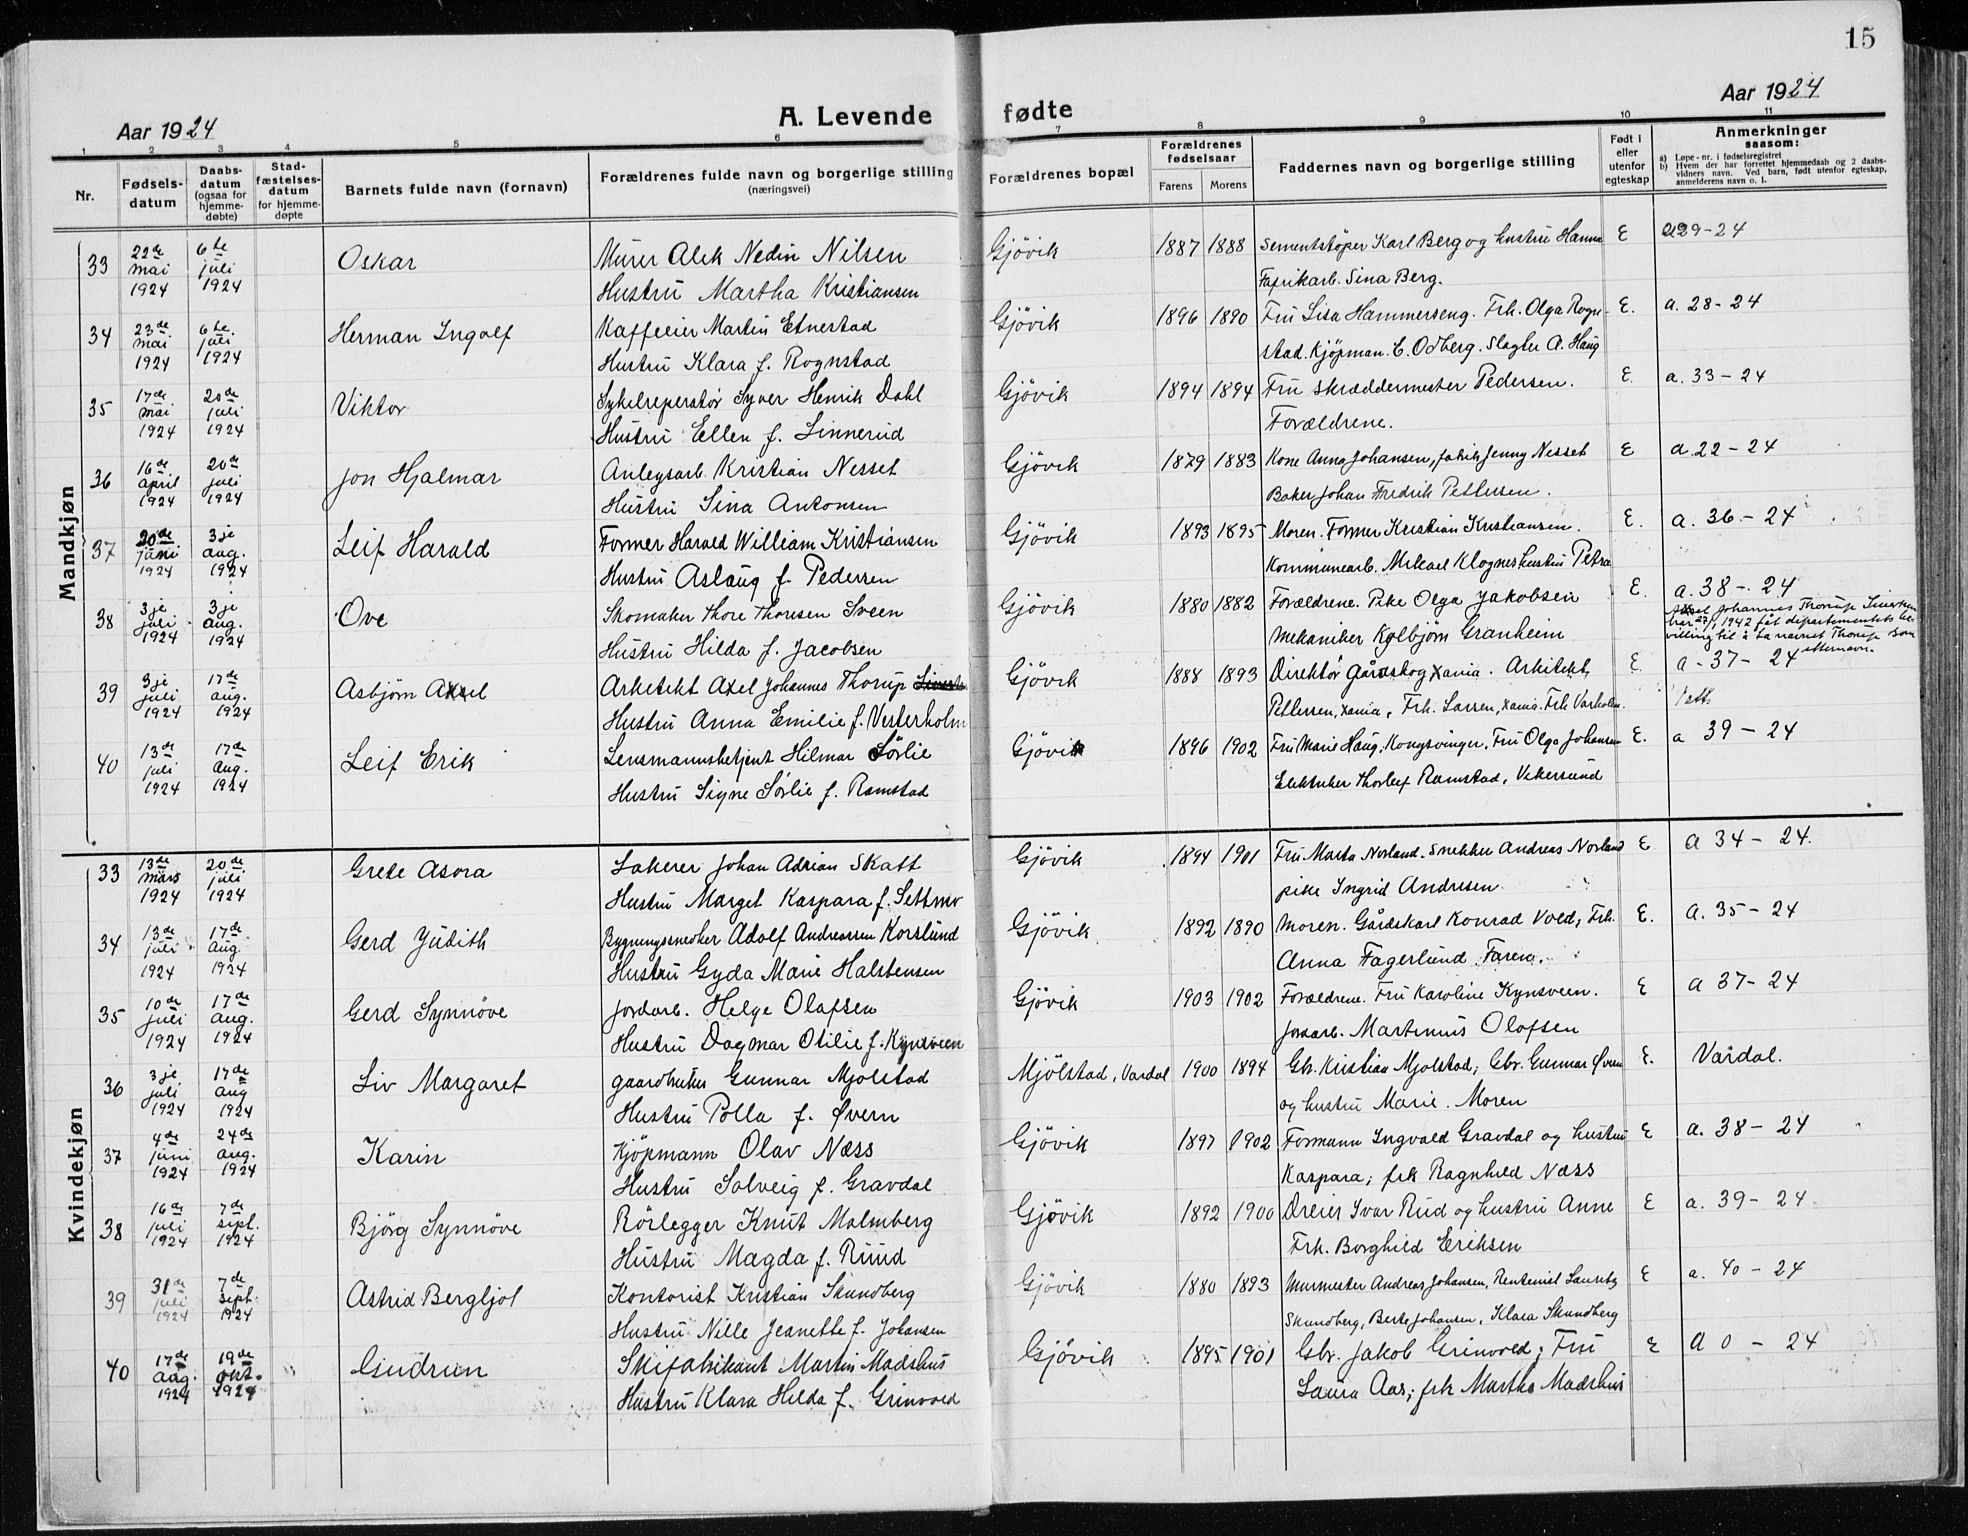 15
Aar 1924
A. Levende fødte
Aar 1924
1 2 3 4 5 6 7 8 9 10 11
Nr.
Fødsels-
datum
Daabs-
datum
(ogsaa for
hjemme-
døbte)
Stad-
fæstelses-
datum
for hjemme-
døpte
Barnets fulde navn (fornavn)
Forældrenes fulde navn og borgerlige stilling
(næringsvei)
Forældrenes bopæl
Forældrenes
fødselsaar
Farens Morens
Faddernes navn og borgerlige stilling
Født i
eller
utenfor
egteskap
Anmerkninger
saasom:
a) Løpe-nr. i fødselsregistret
b) Hvem der har forrettet hjemmedaab og 2 daabs-
vidners navn. Ved barn, født utenfor egteskap,
anmelderens navn o. l.
Mandkjøn
33 22de mai 1924 6te juli 1924 Oskar Murer Alek Nedin Nilsen Gjövik 1887 1888 Sementstöper Karl Berg og hustru Hanna E a29-24
Hustru Martha Kristiansen Faprikarb. Sina Berg.
34 23de mai 1924 6te. juli 1924 Herman Ingolf Kaffeeier Martin Etnestad Gjövik 1896 1890 Fru Lisa Hammerseng. Frk. Olga Rogn- E. a. 28-24
Hustru Klara f. Rognstad stad. Kjöpman. C. Odberg. Slagter A. Haug
35 17de mai 1924 20de juli 1924 Viktor Sykelreperatör Syver Henrik Dahl Gjövik 1894 1894 Fru Skræddermester Pedersen. E. a. 33-24
Hustru Ellen f. Linnerud Forældrene.
36 16de april 1924 20de juli 1924 Jon Hjalmar Anlegsarb. Kristian Nesset Gjövik 1879 1883 Kone Anna Johansen, fabrik Jenny Nesset E a.22-24
Hustru Sina Antonsen Baker Johan Fredrik Pettersen.
37 20de juni 1924 3je aug. 1924 Leif Harald Former Harald William Kristiansen Gjövik 1893 1895 Moren. Former Kristian Kristiansen. E. a. 36-24
Hustru Aslaug f. Pedersen Kommunearb. Mikael Klognes hustru Petra
38 3je juli 1924 3je aug. 1924 Ove Skomaker Thore Thoresen Sveen Gjövik 1880 1882 Forældrene. Pike Olga Jakobsen E. a. 38-24
Hustru Hilda f. Jacobsen Mekaniker Kolbjørn Granheim
Axel Johannes Thorup
har 1942 fåt departementets be-
villing til å ta navnet Thorup som
etternavn.
39 3je juli 1924 17de aug. 1924 Asbjörn Axel Arkitekt Axel Johannes Thorup Gjövik 1888 1893 Direktør Gårdskog Xania. Arkitekt E. a-37-24
Hustru Anna Emilie f. Vesterholm Pettersen, Xania, Frk. Larsen, Xania. Frk Varholm.
40 13de juli 1924 17de aug. 1924 Leif Erik Lensmannsbetjent Hilmar Sørlie Gjövik 1896 1902 Fru Marie Haug, Kongsvinger, Fru Olga Johansen E. a 39-24
Hustru Signe Sørlie f. Ramstad Elektriker Thorleif Ramstad, Vikersund
Kvindekjøn
33 13de mars 1924 20de juli 1924 Grete Asora Lakerer Johan Adrian Skatt Gjövik 1894 1901 Fru Marta Norland. Snekker Andreas Norland E a 34-24.
Hustru Marget Kaspara f. pike Ingrid Andresen
34 13de juli 1924 17de aug 1924 Gerd Judith Bygningssnedker Adolf Andreassen Korslund Gjövik 1892 1890 Moren. Gårdskarl Konrad Vold; Frk. E. a. 35-24
Hustru Gyda Marie Halstensen Anna Fagerlund. Faren.
35 10de juli 1924 17de aug. 1924 Gerd Synnöve Jordarb. Helge Olafsen Gjövik 1903 1902 Forældrene. Fru Karoline Kynsveen. E a 37-24
Hustru Dagmar Otilie f. Kynsveen Jordarb. Martinus Olafsen
36 3je juli 1924 17de aug 1924 Liv Margaret gaardbruker Gunnar Mjølstad Mjölstad, Vardal 1900 1894 Gbr. Kristian Mjolstad; Gbr. Gunnar Øvern E. Vardal.
Hustru Polla f. Øvern og hustru Marie. Moren
37 4de juni 1924 24de aug. 1924 Karin Kjöpmann Olav Næss Gjövik 1897 1902 Formann Ingvald Gravdal og hustru E a. 38-24
Hustru Solveig f. Gravdal Kaspara; frk Ragnhild Næss
38 16de juli 1924 7de sept. 1924 Bjørg Synnöve Rörlegger Knut Malmberg Gjövik 1892 1900 Dreier Ivar Rud og hustru Anne E a. 39-24
Hustru Magda f. Ruud Frk. Borghild Eriksen
39 31de juli 1924 7de sept. 1924 Astrid Bergljot Kontorist Kristian Skundberg Gjövik 1880 1893 Murmester Andreas Johansen, Rentenist Lauritz E a. 40-24
Hustru Nille Jeanette f. Johansen Skundberg, Berte Johansen, Klara Skundberg
40 17de aug. 1924 19de okt. 1924 Gudrun Skifabrikant Martin Madshus Gjövik 1895 1901 Gbr. Jakob Grinvold; Fru E a 0-24
Hustru Klara Hilda f. Grinvold Laura Aas; frk Martha Madshus